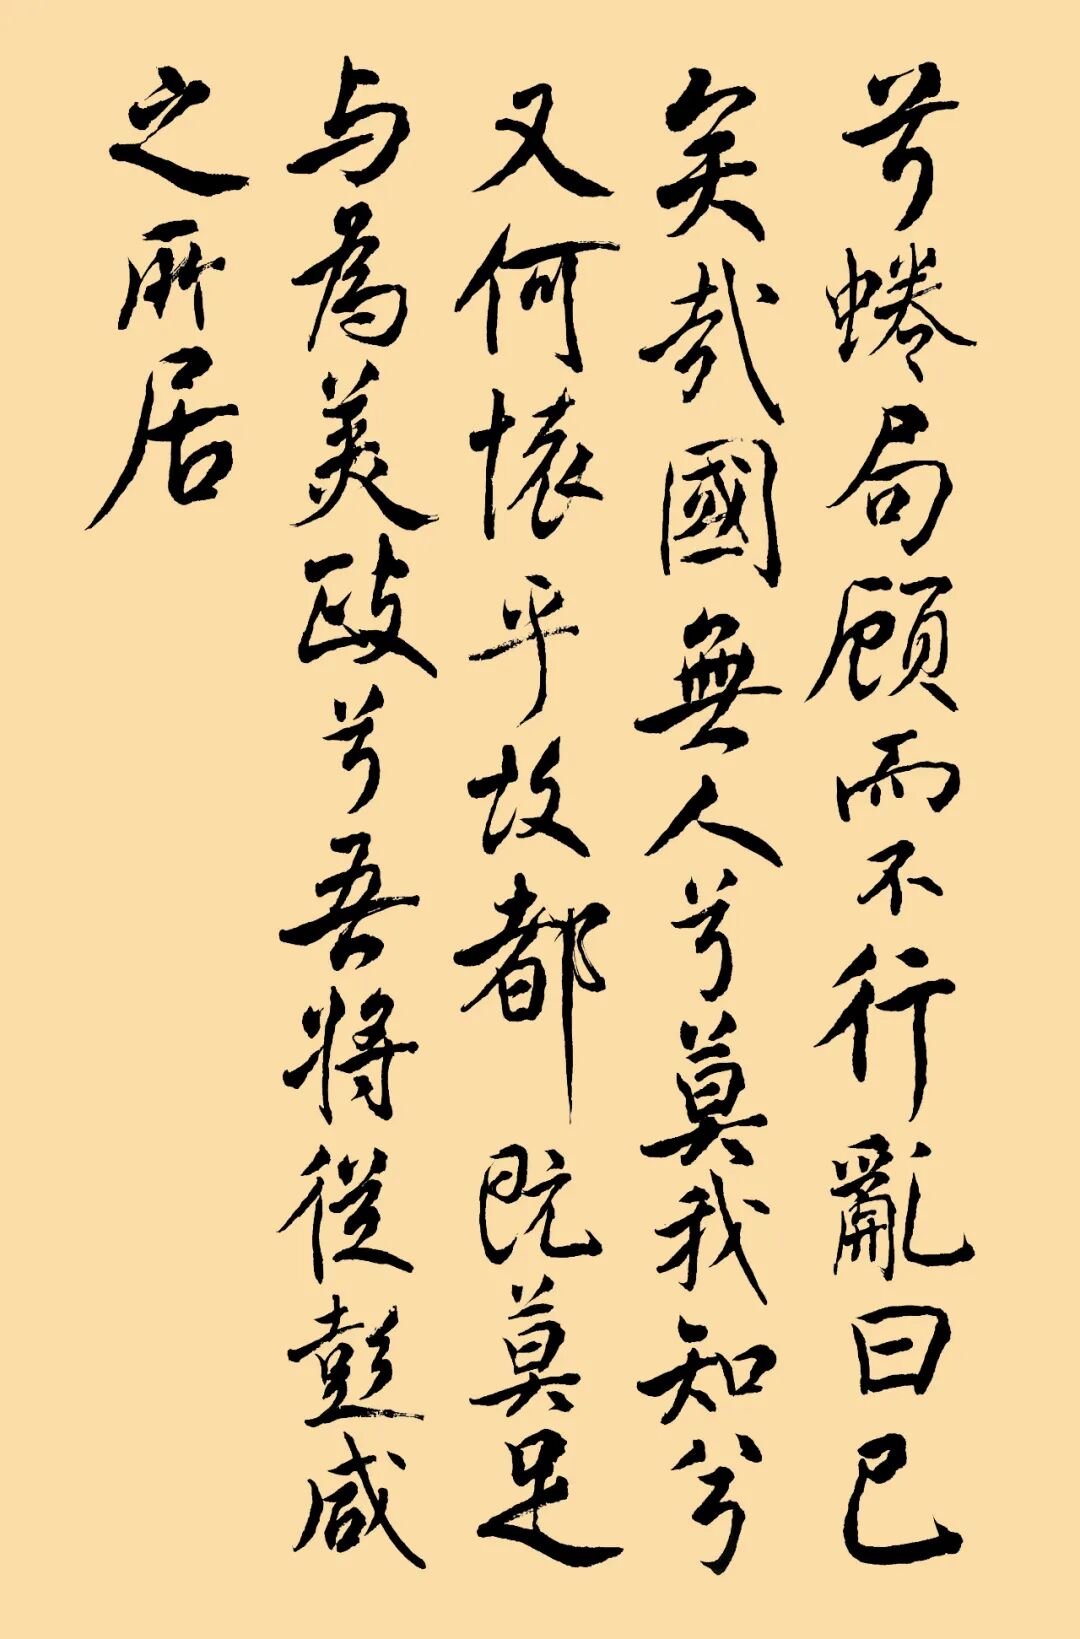 兮蜷局顾而不行亂曰已
矣哉國無人兮莫我知兮
又何懷乎故都既莫足
与為美政兮吾将從彭咸
之所居